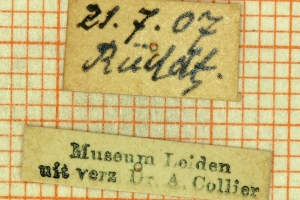 21.7.07
Rüdtz.
Museum Leiden
uit verz Dr. A. Collier